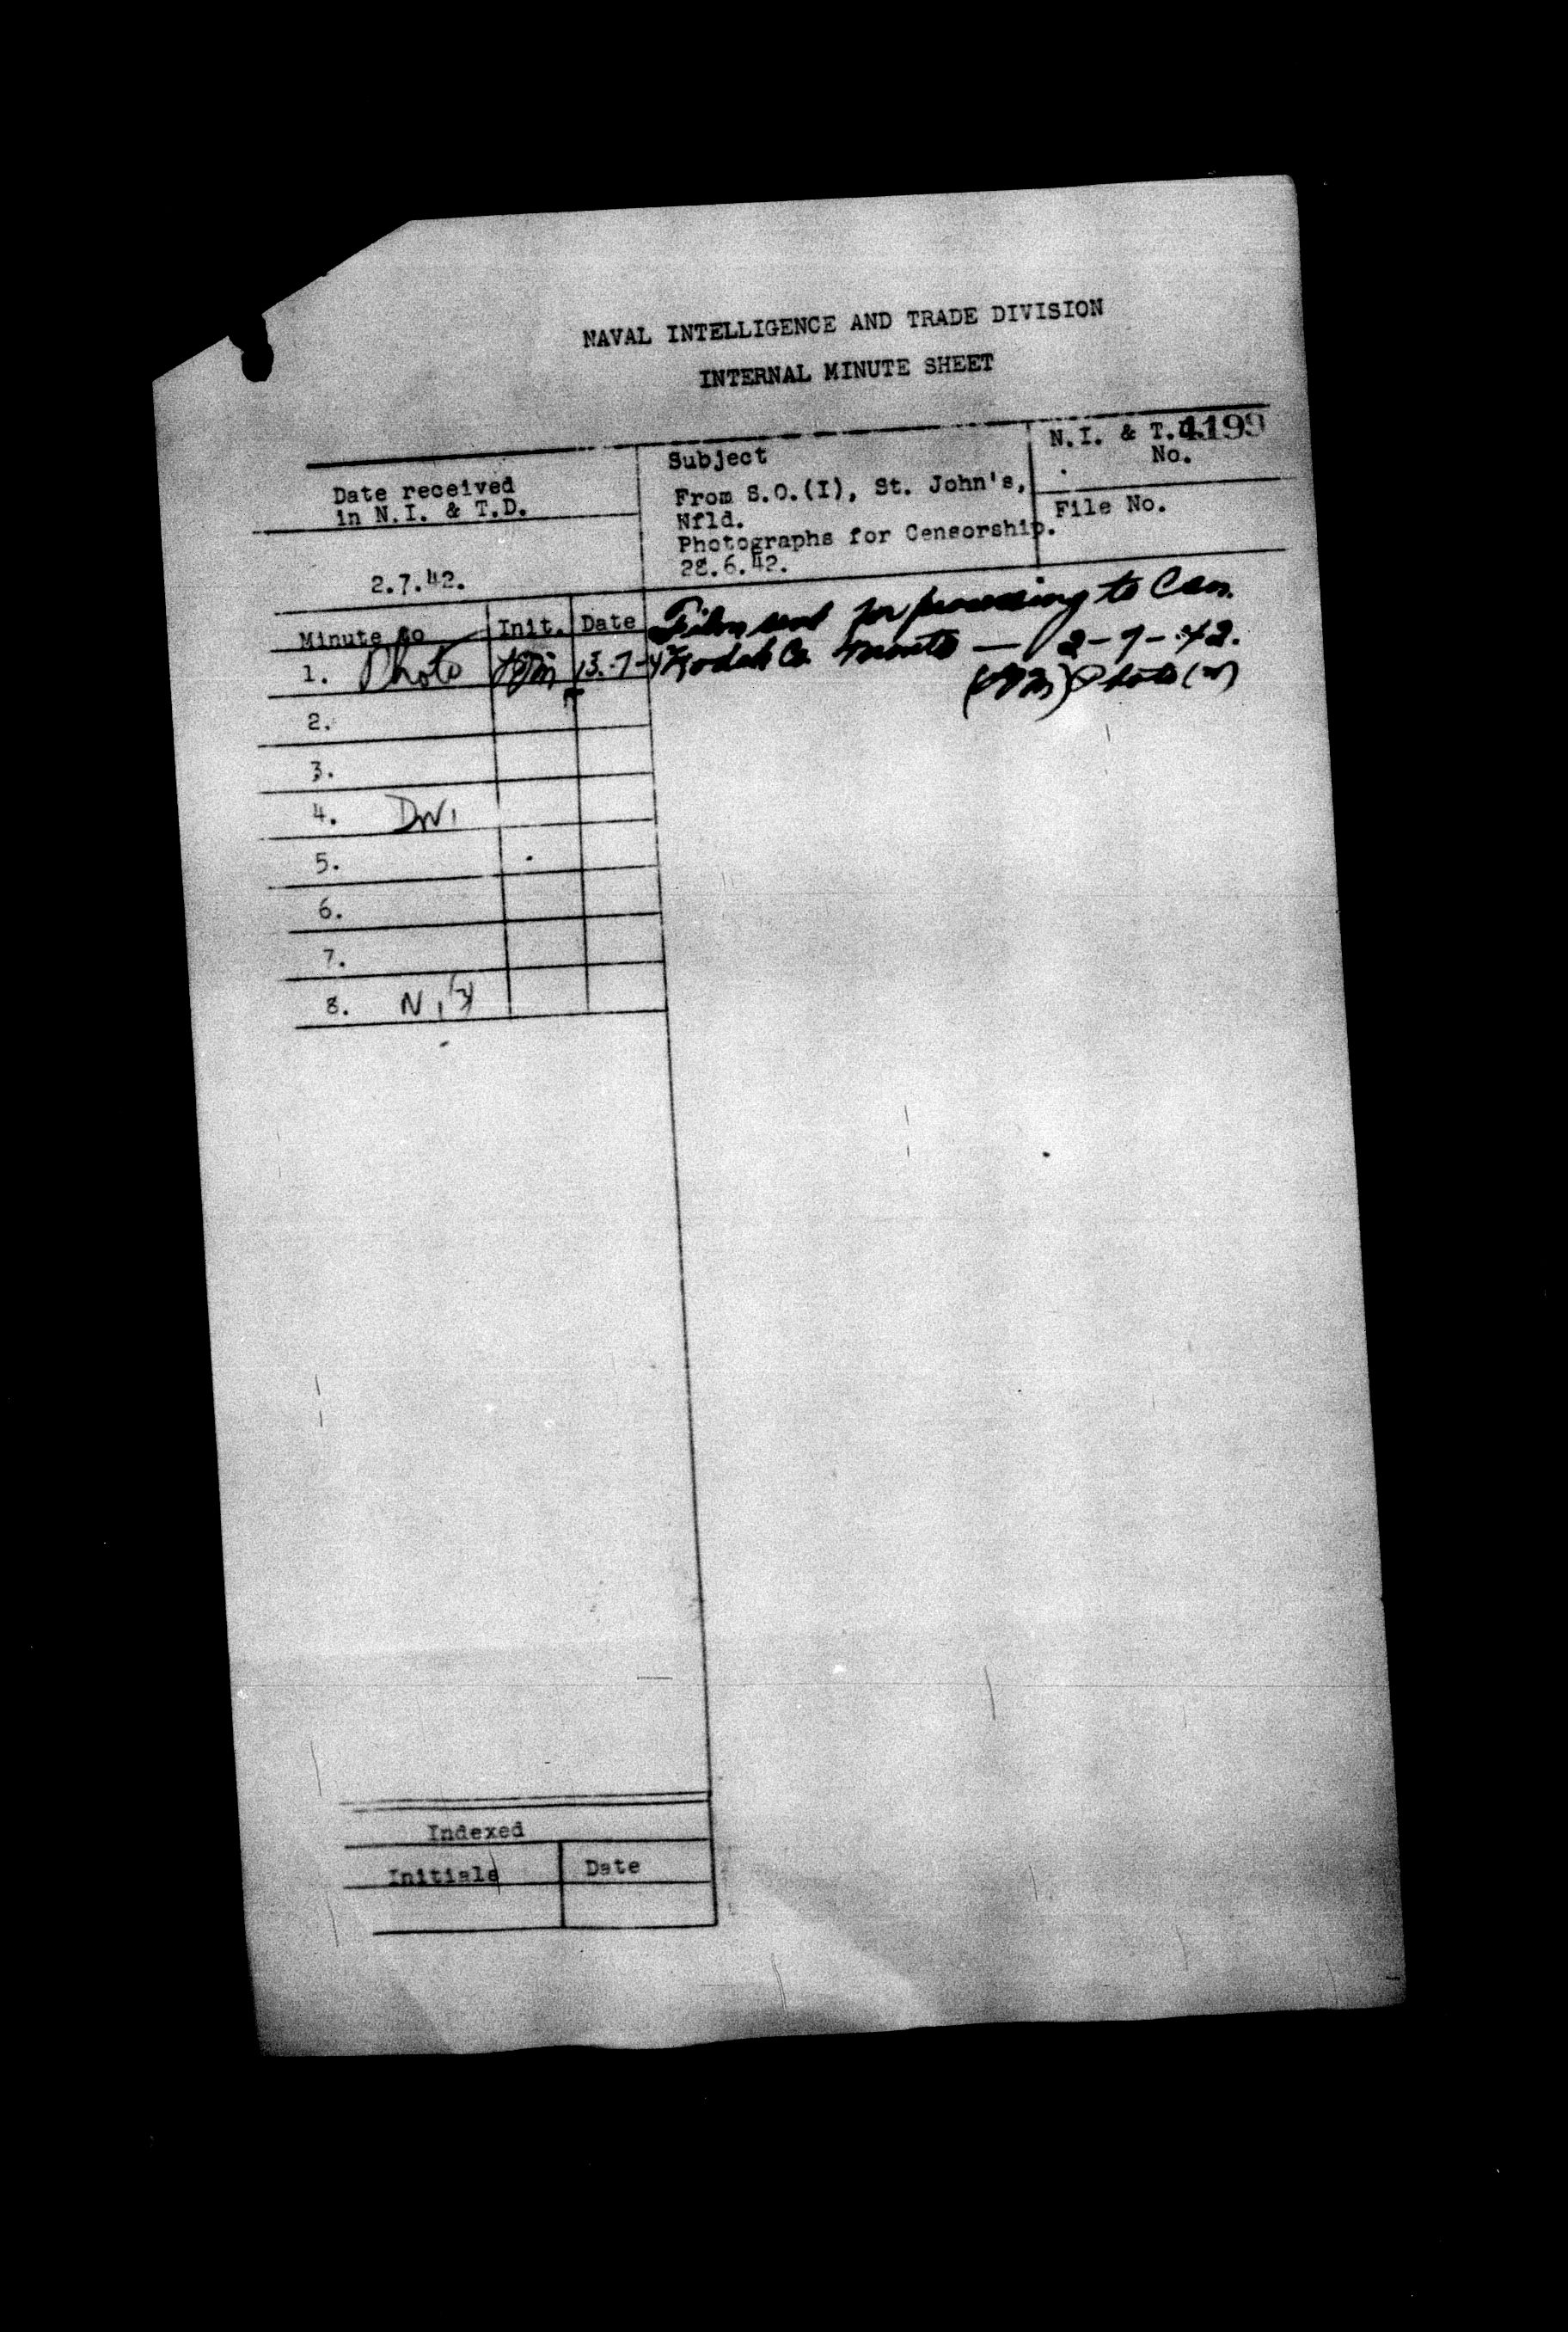 NAVAL INTELLIGENCE AND TRADE DIVISION
INTERNAL MINUTE SHEET
Date received
in N.I. & T.D.
2.7.42.
Subject
From S.O.(I), St. John's,
Nfld.
Photographs for Censorship.
28.6.42.
N.I. & T.D. 4199
No.
File No.
Minute to Init. Date
1. Photo 13-7-42
2.
3.
4. DNI
5.
6.
7.
8.
Film sent for processing to Can.
Kodak Co. Toronto — 2-7-42.
Photo
Indexed
Initials Date